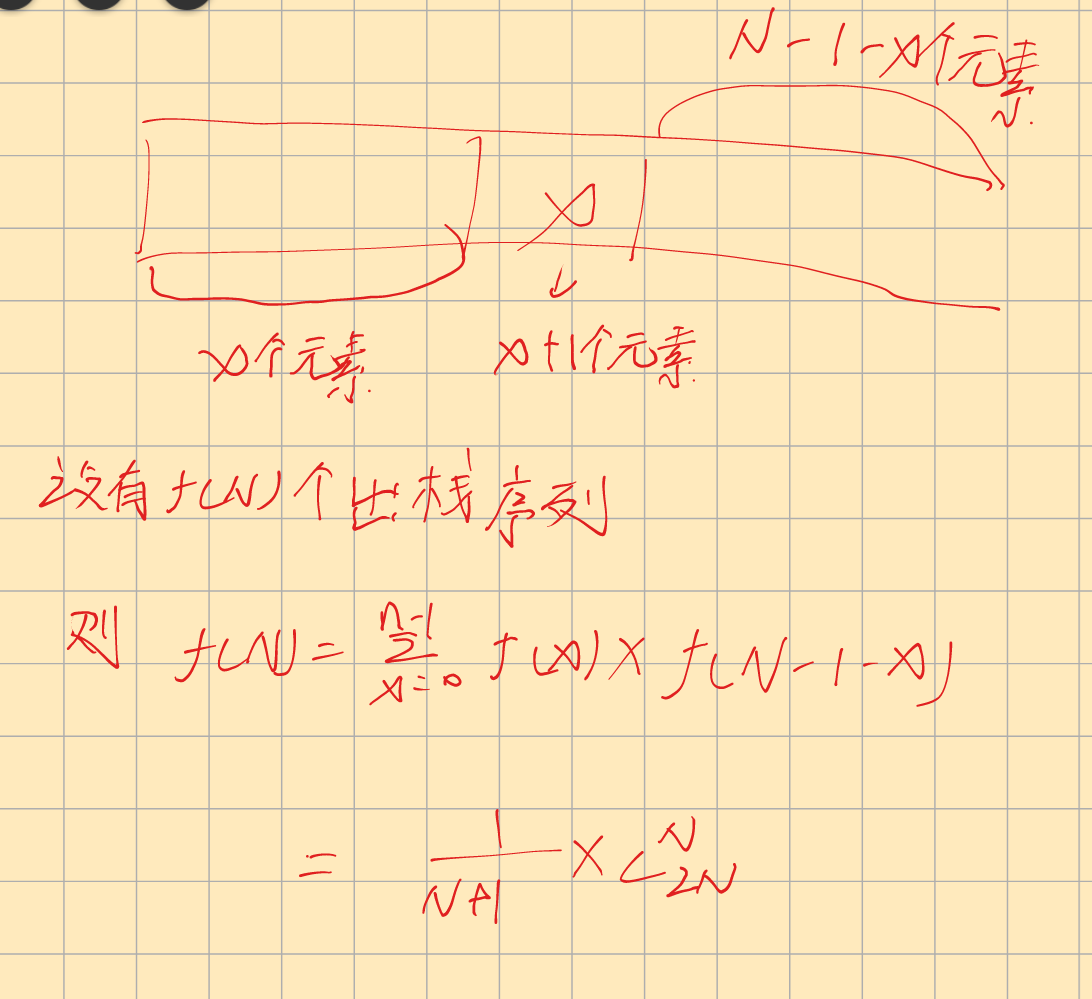 N-1-x个元素
x
x个元素
x+1个元素
设有f(N)个出栈序列
则 f(N) = \sum_{x=0}^{n-1} f(x) × f(N-1-x)
= \frac{1}{N+1} × C_{2N}^{N}